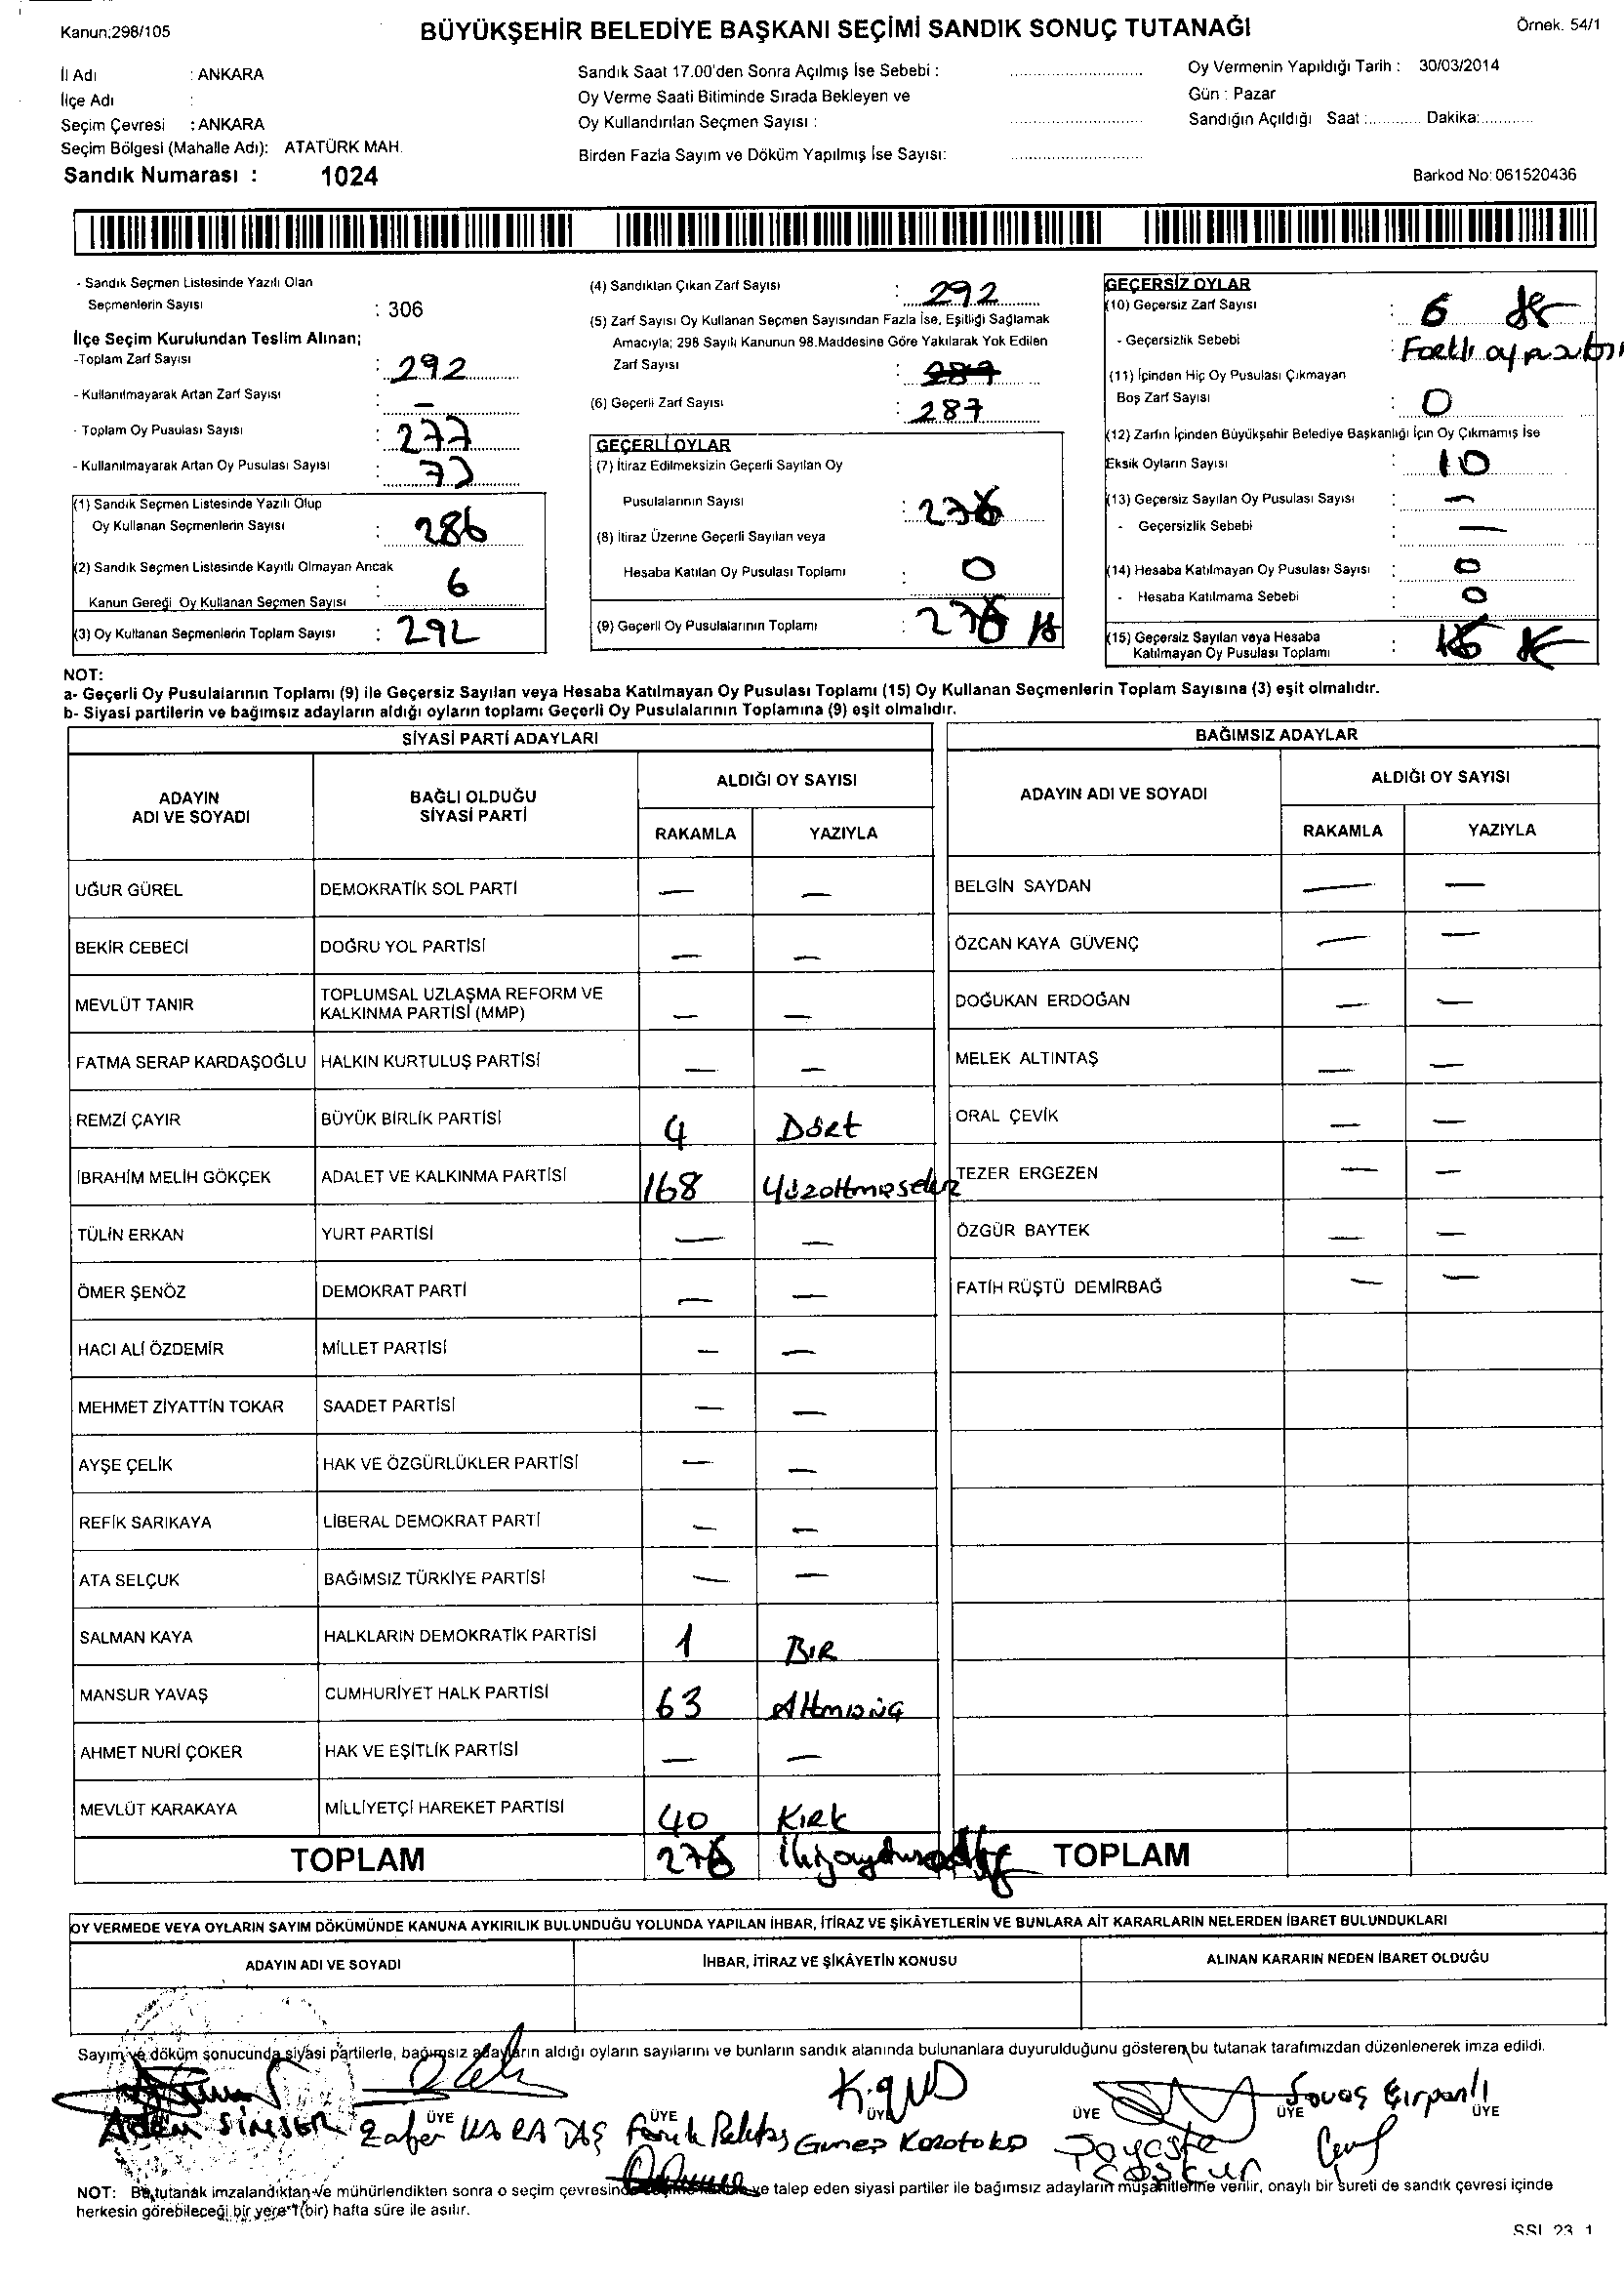 Kanun;298/105
BÜYÜKŞEHİR BELEDİYE BAŞKANI SEÇİMİ SANDIK SONUÇ TUTANAĞI
Örnek. 54/1
İl Adı : ANKARA
İlçe Adı :
Seçim Çevresi : ANKARA
Seçim Bölgesi (Mahalle Adı): ATATÜRK MAH.
Sandık Numarası : 1024
Sandık Saat 17.00'den Sonra Açılmış İse Sebebi :
Oy Verme Saati Bitiminde Sırada Bekleyen ve
Oy Kullandırılan Seçmen Sayısı :
Birden Fazla Sayım ve Döküm Yapılmış İse Sayısı:
Oy Vermenin Yapıldığı Tarih : 30/03/2014
Gün : Pazar
Sandığın Açıldığı Saat :............ Dakika:............
Barkod No: 061520436
- Sandık Seçmen Listesinde Yazılı Olan
Seçmenlerin Sayısı : 306
İlçe Seçim Kurulundan Teslim Alınan;
-Toplam Zarf Sayısı : 292
- Kullanılmayarak Artan Zarf Sayısı : –
- Toplam Oy Pusulası Sayısı : 277
- Kullanılmayarak Artan Oy Pusulası Sayısı :
(1) Sandık Seçmen Listesinde Yazılı Olup
Oy Kullanan Seçmenlerin Sayısı : 286
(2) Sandık Seçmen Listesinde Kayıtlı Olmayan Ancak
Kanun Gereği Oy Kullanan Seçmen Sayısı : 6
(3) Oy Kullanan Seçmenlerin Toplam Sayısı : 292
(4) Sandıktan Çıkan Zarf Sayısı : 292
(5) Zarf Sayısı Oy Kullanan Seçmen Sayısından Fazla İse, Eşitliği Sağlamak
Amacıyla; 298 Sayılı Kanunun 98.Maddesine Göre Yakılarak Yok Edilen
Zarf Sayısı : 287
(6) Geçerli Zarf Sayısı : 287
GEÇERLİ OYLAR
(7) İtiraz Edilmeksizin Geçerli Sayılan Oy
Pusulalarının Sayısı : 276
(8) İtiraz Üzerine Geçerli Sayılan veya
Hesaba Katılan Oy Pusulası Toplamı : 0
(9) Geçerli Oy Pusulalarının Toplamı : 276
GEÇERSİZ OYLAR
(10) Geçersiz Zarf Sayısı : 6
- Geçersizlik Sebebi :
(11) İçinden Hiç Oy Pusulası Çıkmayan
Boş Zarf Sayısı : 0
(12) Zarfın İçinden Büyükşehir Belediye Başkanlığı İçin Oy Çıkmamış İse
Eksik Oyların Sayısı : 10
(13) Geçersiz Sayılan Oy Pusulası Sayısı : –
- Geçersizlik Sebebi : —
(14) Hesaba Katılmayan Oy Pusulası Sayısı : 0
- Hesaba Katılmama Sebebi : 0
(15) Geçersiz Sayılan veya Hesaba
Katılmayan Oy Pusulası Toplamı : 16
NOT:
a- Geçerli Oy Pusulalarının Toplamı (9) ile Geçersiz Sayılan veya Hesaba Katılmayan Oy Pusulası Toplamı (15) Oy Kullanan Seçmenlerin Toplam Sayısına (3) eşit olmalıdır.
b- Siyasi partilerin ve bağımsız adayların aldığı oyların toplamı Geçerli Oy Pusulalarının Toplamına (9) eşit olmalıdır.
SİYASİ PARTİ ADAYLARI
ADAYIN ADI VE SOYADI
BAĞLI OLDUĞU SİYASİ PARTİ
ALDIĞI OY SAYISI
RAKAMLA YAZIYLA
UĞUR GÜREL DEMOKRATİK SOL PARTİ — —
BEKİR CEBECİ DOĞRU YOL PARTİSİ — —
MEVLÜT TANIR TOPLUMSAL UZLAŞMA REFORM VE KALKINMA PARTİSİ (MMP) — —
FATMA SERAP KARDAŞOĞLU HALKIN KURTULUŞ PARTİSİ — —
REMZİ ÇAYIR BÜYÜK BİRLİK PARTİSİ 4 Dört
İBRAHİM MELİH GÖKÇEK ADALET VE KALKINMA PARTİSİ 168 Yüzaltmışsekiz
TÜLİN ERKAN YURT PARTİSİ — —
ÖMER ŞENÖZ DEMOKRAT PARTİ — —
HACI ALİ ÖZDEMİR MİLLET PARTİSİ — —
MEHMET ZİYATTİN TOKAR SAADET PARTİSİ — —
AYŞE ÇELİK HAK VE ÖZGÜRLÜKLER PARTİSİ — —
REFİK SARIKAYA LİBERAL DEMOKRAT PARTİ — —
ATA SELÇUK BAĞIMSIZ TÜRKİYE PARTİSİ — —
SALMAN KAYA HALKLARIN DEMOKRATİK PARTİSİ 1 BIR
MANSUR YAVAŞ CUMHURİYET HALK PARTİSİ 63 Altmışüç
AHMET NURİ ÇOKER HAK VE EŞİTLİK PARTİSİ — —
MEVLÜT KARAKAYA MİLLİYETÇİ HAREKET PARTİSİ 40 Kırk
TOPLAM 276
BAĞIMSIZ ADAYLAR
ADAYIN ADI VE SOYADI
ALDIĞI OY SAYISI
RAKAMLA YAZIYLA
BELGİN SAYDAN — —
ÖZCAN KAYA GÜVENÇ — —
DOĞUKAN ERDOĞAN — —
MELEK ALTINTAŞ — —
ORAL ÇEVİK — —
TEZER ERGEZEN — —
ÖZGÜR BAYTEK — —
FATİH RÜŞTÜ DEMİRBAĞ — —
TOPLAM
OY VERMEDE VEYA OYLARIN SAYIM DÖKÜMÜNDE KANUNA AYKIRILIK BULUNDUĞU YOLUNDA YAPILAN İHBAR, İTİRAZ VE ŞİKÂYETLERİN VE BUNLARA AİT KARARLARIN NELERDEN İBARET BULUNDUKLARI
ADAYIN ADI VE SOYADI
İHBAR, İTİRAZ VE ŞİKÂYETİN KONUSU
ALINAN KARARIN NEDEN İBARET OLDUĞU
Sayım ve döküm sonucunda siyasi partilerle, bağımsız adayların aldığı oyların sayılarını ve bunların sandık alanında bulunanlara duyurulduğunu gösteren bu tutanak tarafımızdan düzenlenerek imza edildi.
ÜYE ÜYE ÜYE ÜYE ÜYE ÜYE
Adem Zafer KARATAŞ Faruk
NOT: Bu tutanak imzalandıktan ve mühürlendikten sonra o seçim çevresinde ve talep eden siyasi partiler ile bağımsız adayların müşahitlerine verilir, onaylı bir sureti de sandık çevresi içinde
herkesin görebileceği bir yere 1(bir) hafta süre ile asılır.